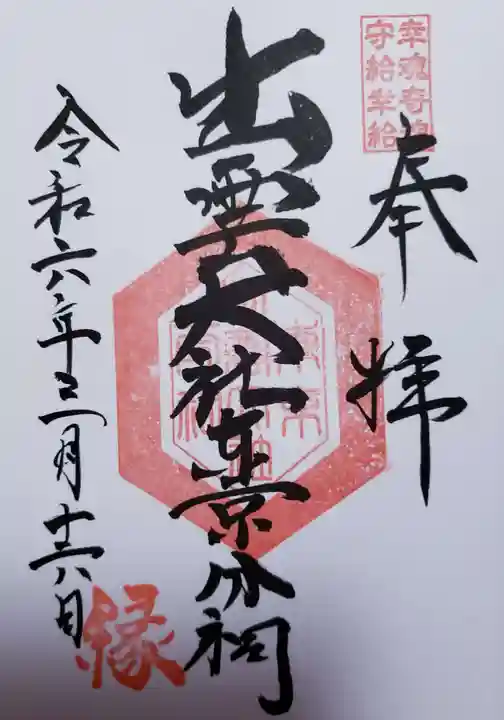 幸魂奇魂
守給幸給
奉拝
出雲大社東京分祠
令和六年三月十六日
縁